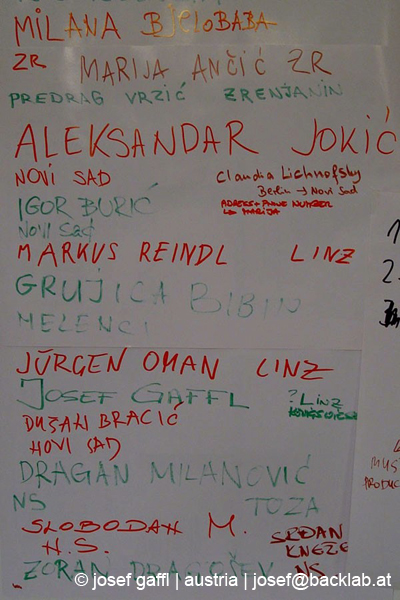 MILANA BJELOBABA
ZR MARIJA ANČIĆ ZR
PREDRAG VRZIĆ ZRENJANIN
ALEKSANDAR JOKIĆ
NOVI SAD
Claudia Lichnofsky
Berlin → Novi Sad
IGOR BURIĆ
NOVI SAD
ADRESS + PHNE NUMBER
MARIJA
MARKUS REINDL LINZ
GRUJICA BIBIN
MELENCI
JÜRGEN OMAN LINZ
JOSEF GAFFL ? LINZ
DUŠAN BRACIĆ
NOVI SAD
DRAGAN MILANOVIĆ
NS TOZA
SLOBODAN M.
N.S.
SRĐAN
KNEZE
ZORAN
NS
1
2
MUS
PRODUC
© josef gaffl | austria | josef@backlab.at